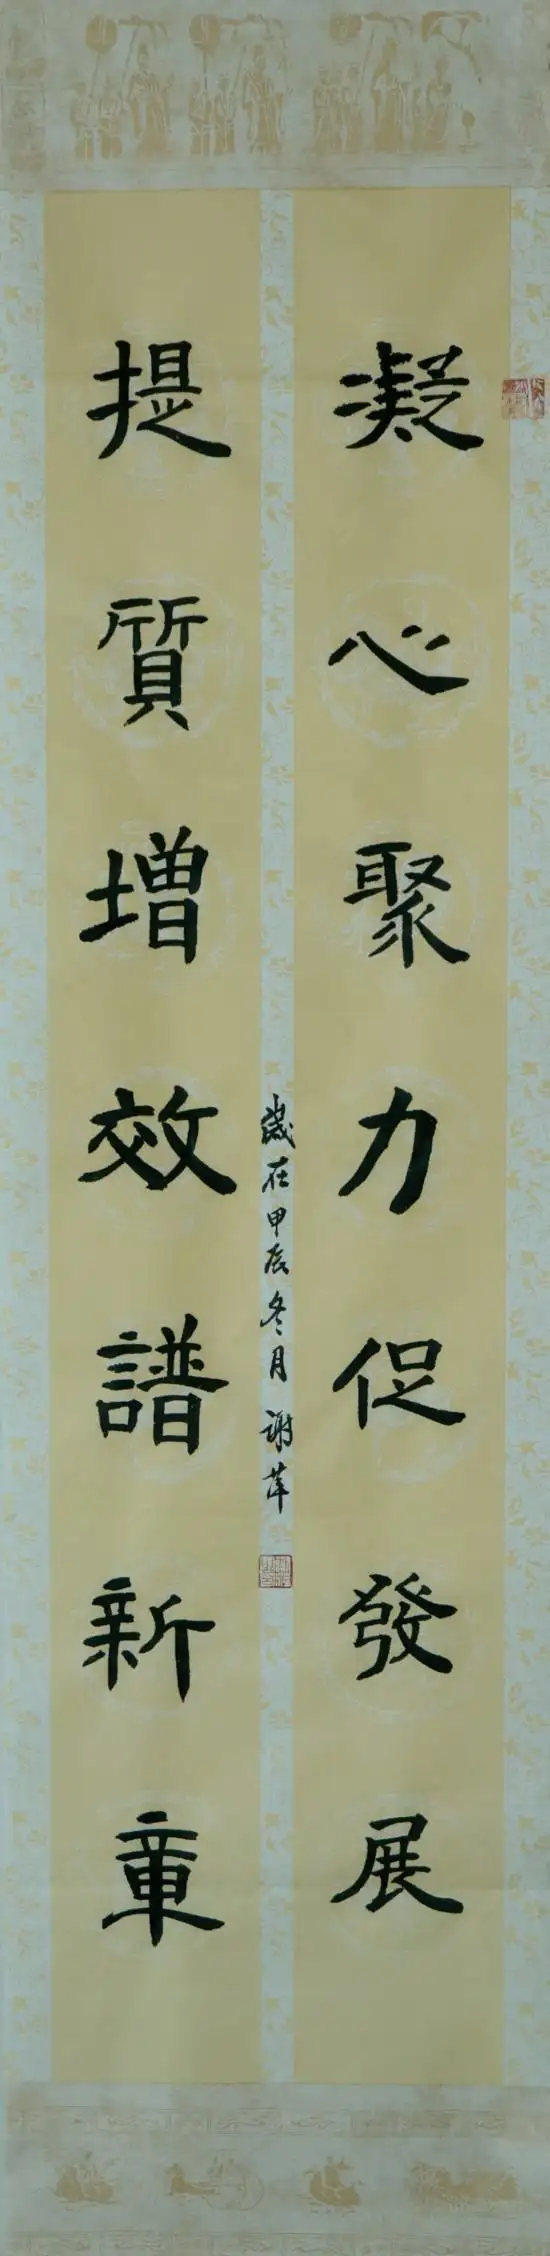 凝心聚力促發展
提質增效譜新章
歲在甲辰冬月 謝萍